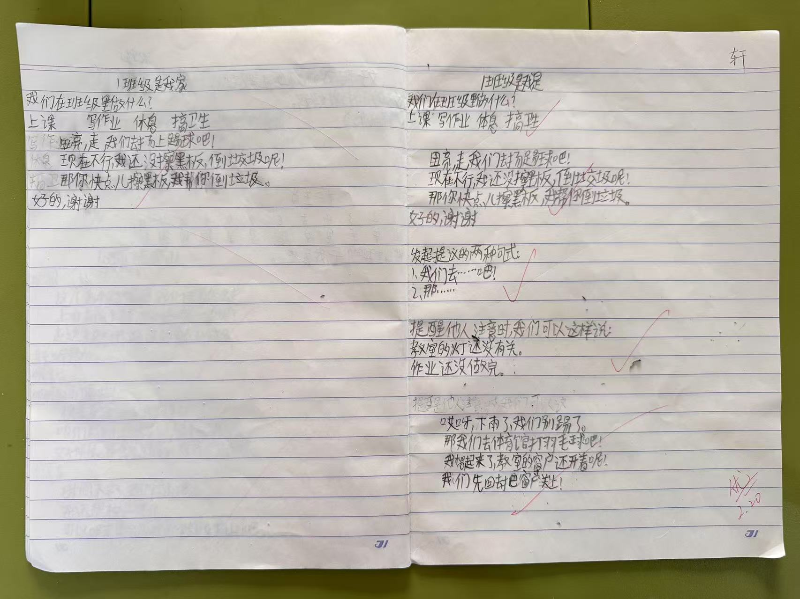 1班级是我家
我们在班级里做什么?
上课 写作业 休息 搞卫生
田亮,走,我们去球场上踢球吧!
现在不行,我还没擦黑板,倒垃圾呢!
那你快点儿擦黑板,我帮你倒垃圾。
好的,谢谢
轩
1班级是我家
我们在班级里做什么?
上课 写作业 休息 搞卫生
田亮,走,我们去踢足球吧!
现在不行,我还没擦黑板,倒垃圾呢!
那你快点儿擦黑板,我帮你倒垃圾。
好的,谢谢
发起提议的两种句式:
1.我们去……吧!
2.那……
提醒他人注意时,我们可以这样说:
教室的灯还没有关。
作业还没做完。
哎呀,下雨了,我们别踢了。
那我们去体育馆打羽毛球吧!
我想起来了,教室的窗户还开着呢!
我们先回去把窗户关上!
优
2.20